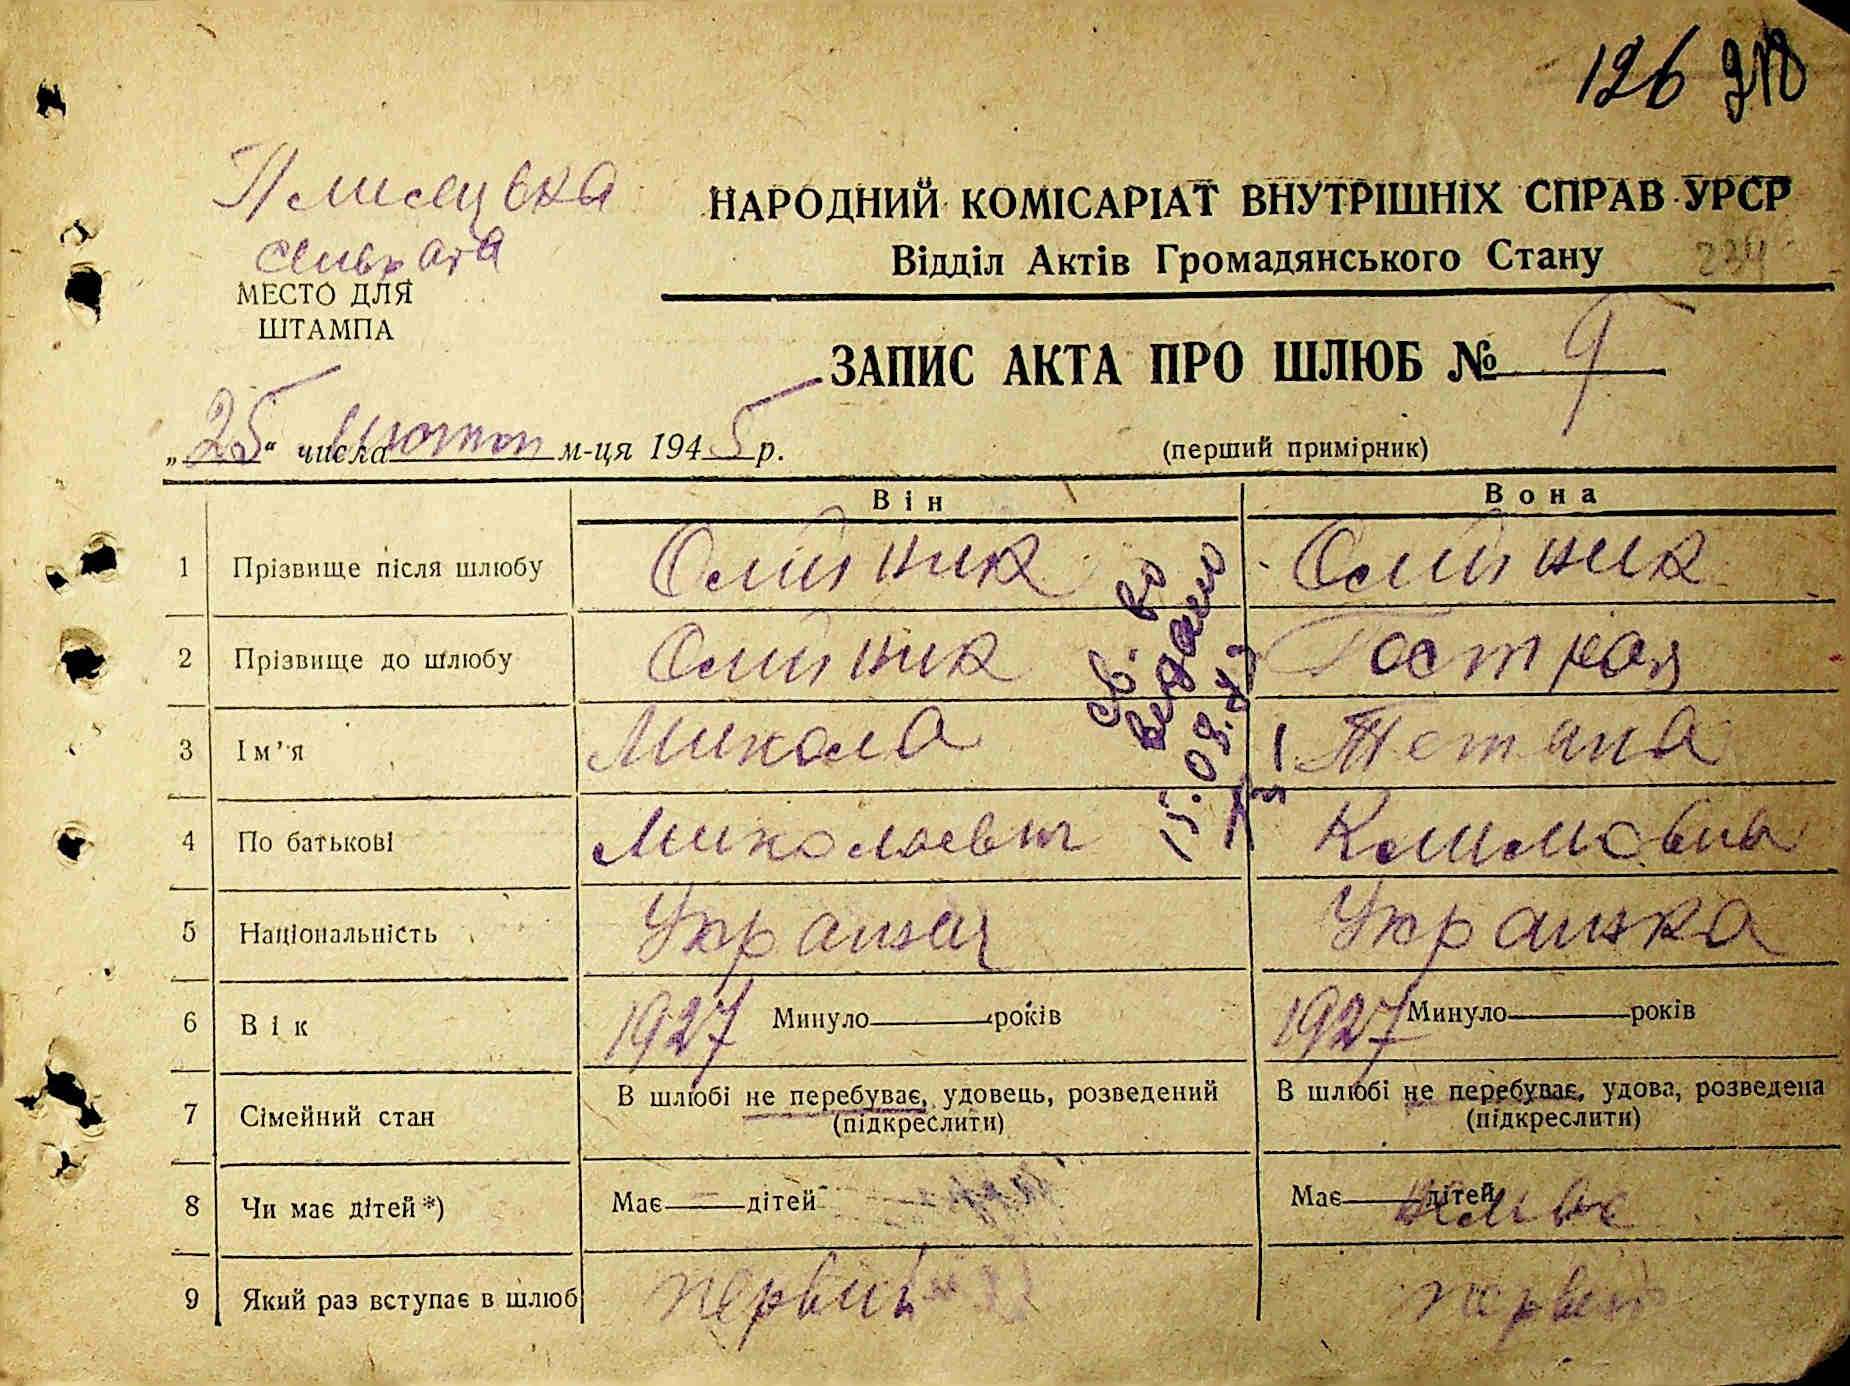 126 218
Плисецька
сільрада
МЕСТО ДЛЯ
ШТАМПА
НАРОДНИЙ КОМІСАРІАТ ВНУТРІШНІХ СПРАВ УРСР
Відділ Актів Громадянського Стану 234
ЗАПИС АКТА ПРО ШЛЮБ № 9
„25“ числа лютого м-ця 1945 р.
(перший примірник)
Він Вона
1 Прізвище після шлюбу Олійник Олійник
2 Прізвище до шлюбу Олійник Гострая
3 Ім’я Микола Тетяна
4 По батькові Миколаєвич Климовна
св. во
выдано
15.08.
5 Національність Українец Українка
6 Вік 1927 Минуло років 1927 Минуло років
7 Сімейний стан В шлюбі не перебуває, удовець, розведений (підкреслити) В шлюбі не перебуває, удова, розведена (підкреслити)
8 Чи має дітей *) Має дітей Має дітей немає
9 Який раз вступає в шлюб первий первий